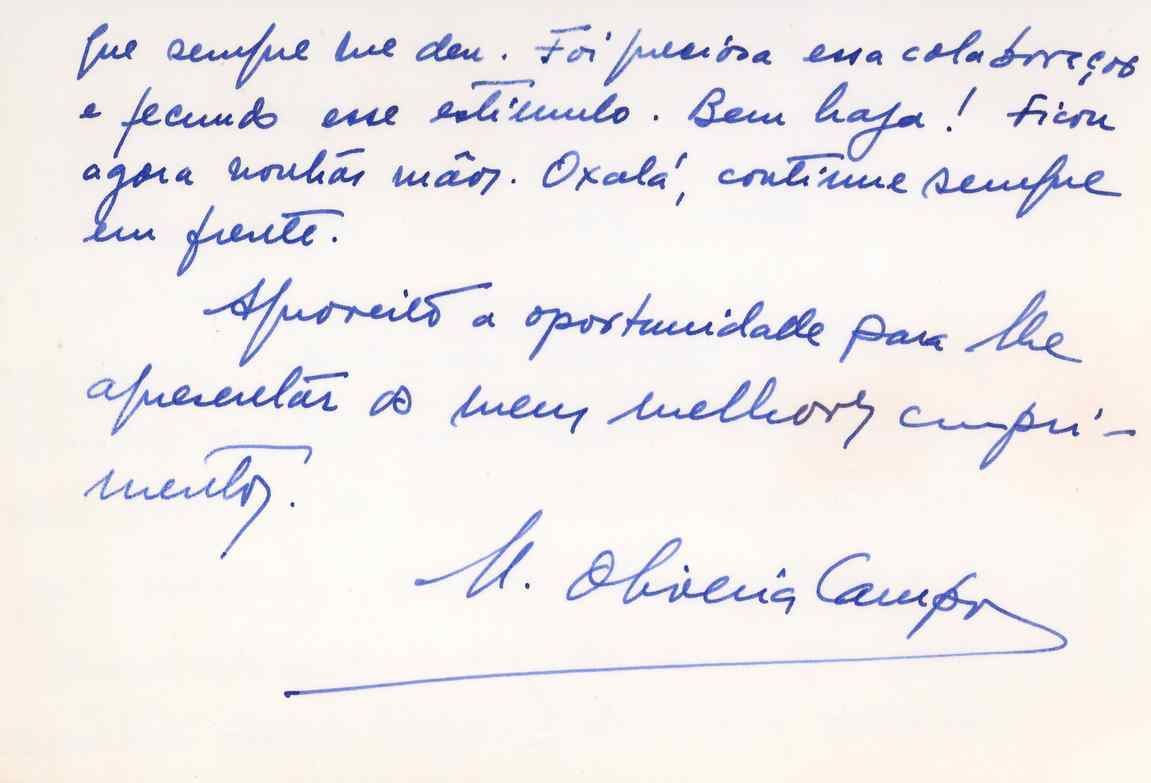 que sempre me deu. Foi preciosa essa colaboração
e fecundo esse estímulo. Bem haja! Ficou
agora noutras mãos. Oxalá, continue sempre
em frente.
Aproveito a oportunidade para lhe
apresentar os meus melhores cumpri-
mentos.
M. Oliveira Campos